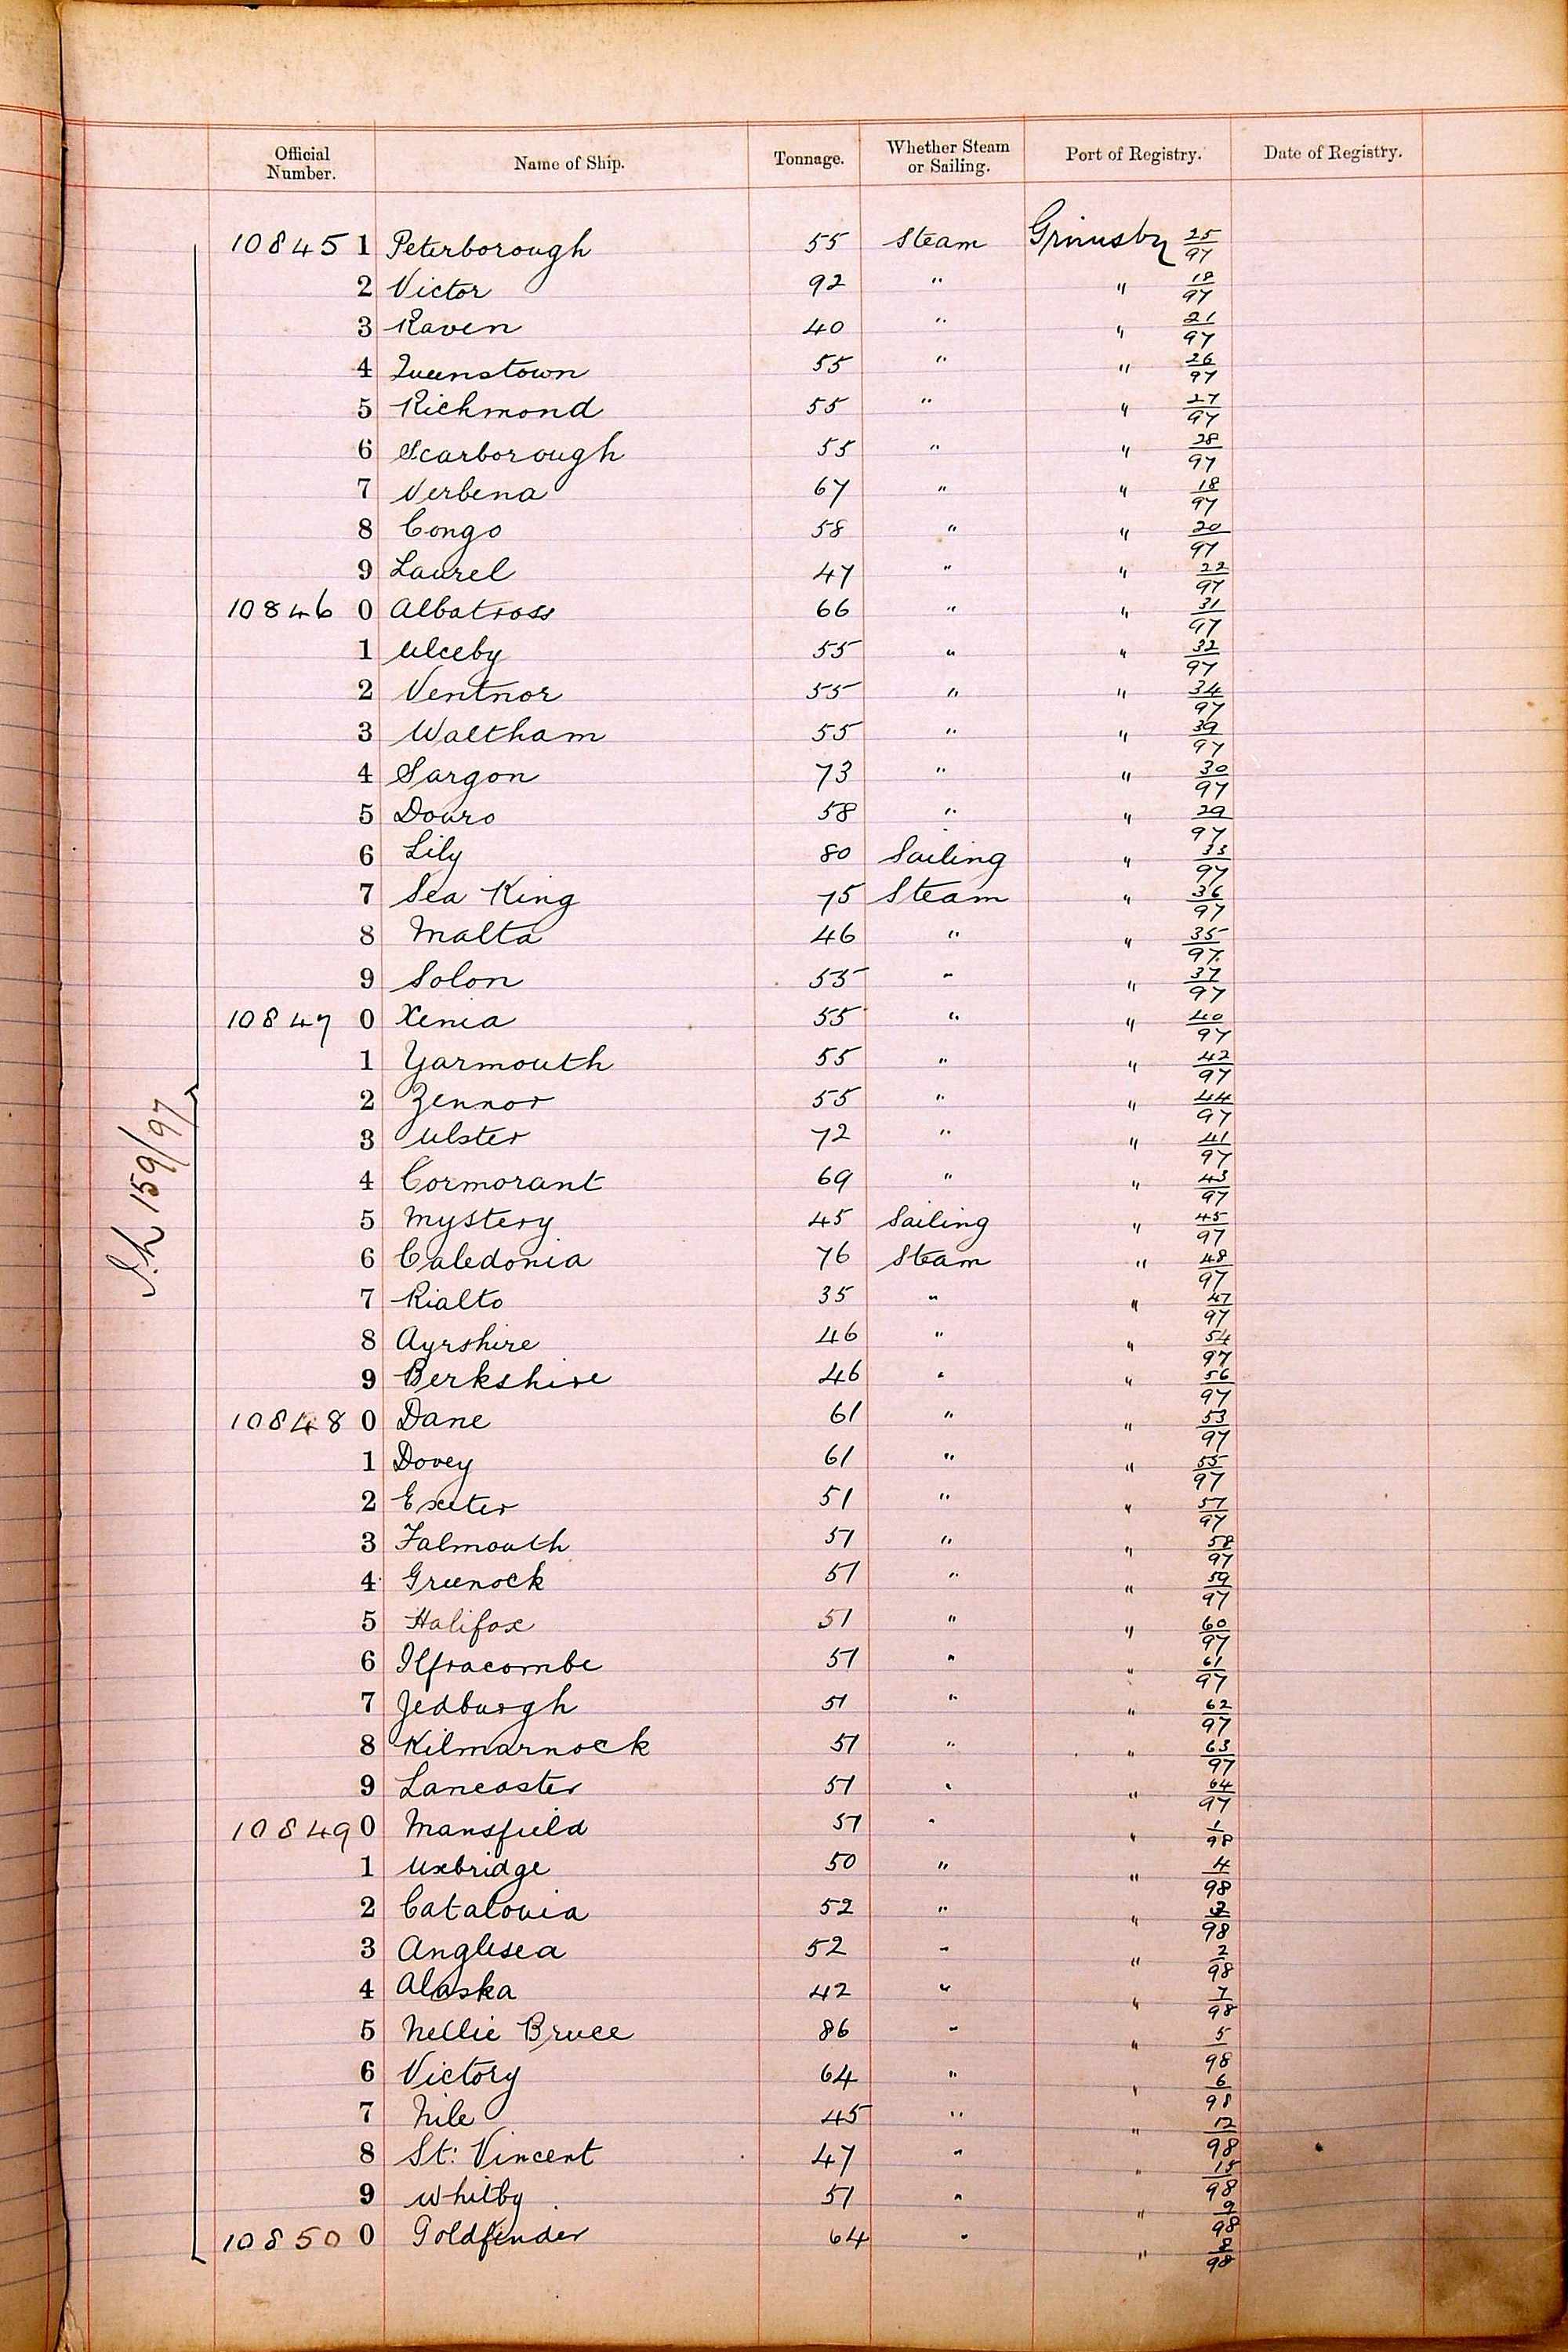 Official Number. Name of Ship. Tonnage. Whether Steam or Sailing. Port of Registry. Date of Registry.
108451 Peterborough 55 Steam Grimsby 25/97
2 Victor 92 " " 18/97
3 Raven 40 " " 21/97
4 Queenstown 55 " " 26/97
5 Richmond 55 " " 27/97
6 Scarborough 55 " " 28/97
7 Verbena 67 " " 18/97
8 Congo 58 " " 20/97
9 Laurel 47 " " 22/97
108460 Albatross 66 " " 31/97
1 Ulceby 55 " " 32/97
2 Ventnor 55 " " 34/97
3 Waltham 55 " " 39/97
4 Sargon 73 " " 30/97
5 Douro 58 " " 29/97
6 Lily 80 Sailing " 33/97
7 Sea King 75 Steam " 36/97
8 Malta 46 " " 35/97
9 Solon 55 " " 37/97
108470 Xenia 55 " " 40/97
1 Yarmouth 55 " " 42/97
2 Zennor 55 " " 44/97
3 Ulster 72 " " 41/97
4 Cormorant 69 " " 43/97
5 Mystery 45 Sailing " 45/97
6 Caledonia 76 Steam " 48/97
7 Rialto 35 " " 47/97
8 Ayrshire 46 " " 54/97
9 Berkshire 46 " " 56/97
108480 Dane 61 " " 53/97
1 Dovey 61 " " 55/97
2 Exeter 51 " " 57/97
3 Falmouth 51 " " 58/97
4 Greenock 51 " " 59/97
5 Halifax 51 " " 60/97
6 Ilfracombe 51 " " 61/97
7 Jedburgh 51 " " 62/97
8 Kilmarnock 51 " " 63/97
9 Lancaster 51 " " 64/97
108490 Mansfield 51 " " 1/98
1 Uxbridge 50 " " 4/98
2 Catalonia 52 " " 3/98
3 Anglesea 52 " " 2/98
4 Alaska 42 " " 7/98
5 Nellie Bruce 86 " " 5/98
6 Victory 64 " " 6/98
7 Nile 45 " " 12/98
8 St: Vincent 47 " " 15/98
9 Whitby 51 " " 9/98
108500 Goldfinder 64 " " 8/98
159/97